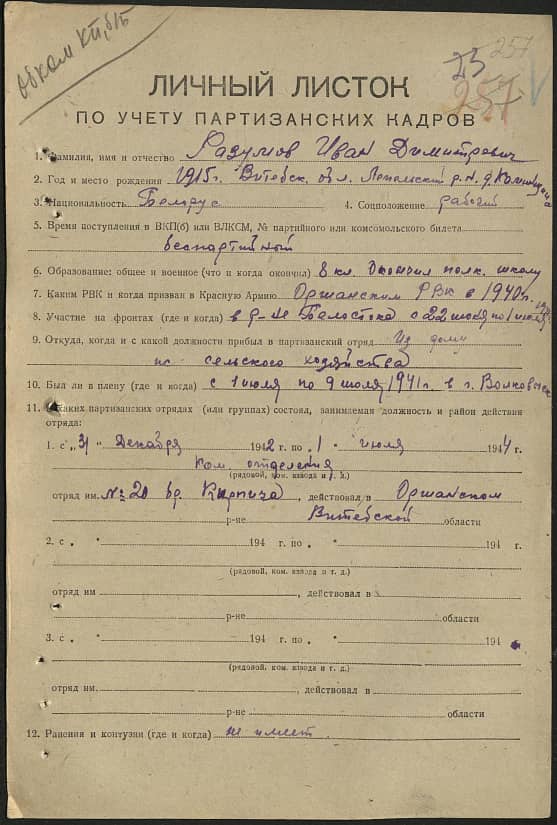 Обком КП(б)Б
257
23
257
ЛИЧНЫЙ ЛИСТОК
ПО УЧЕТУ ПАРТИЗАНСКИХ КАДРОВ
1. Фамилия, имя и отчество Разумов Иван Димитревич
2. Год и место рождения 1915г. Витебск. обл. Лепельский р.н. д.
3. Национальность Белорус 4. Соцположение рабочий
5. Время поступления в ВКП(б) или ВЛКСМ, № партийного или комсомольского билета
беспартийный
6. Образование: общее и военное (что и когда окончил) 8 кл. Окончил полк. школу
7. Каким РВК и когда призван в Красную Армию Оршанским РВК в 1940г.
8. Участие на фронтах (где и когда) в р-не Белостока с 22 июня по 1 июля
9. Откуда, когда и с какой должности прибыл в партизанский отряд Из дому
из сельского хозяйства
10. Был ли в плену (где и когда) с 1 июля по 9 июля 1941г. в г. Волковыск
11. В каких партизанских отрядах (или группах) состоял, занимаемая должность и район действия
отряда:
1. с „31" Декабря 1942 г. по „1" июля 1944 г.
Ком. отделения
(рядовой, ком. взвода и т. д.)
отряд им. №20 бр. Кирпича, действовал в Оршанском
р-не Витебской области
2. с „ " 194 г. по „ " 194 г.
(рядовой, ком. взвода и т. д.)
отряд им , действовал в
р-не области
3. с „ " 194 г. по „ " 194
(рядовой, ком. взвода и т. д.)
отряд им. , действовал в
р-не области
12. Ранения и контузии (где и когда) не имеет